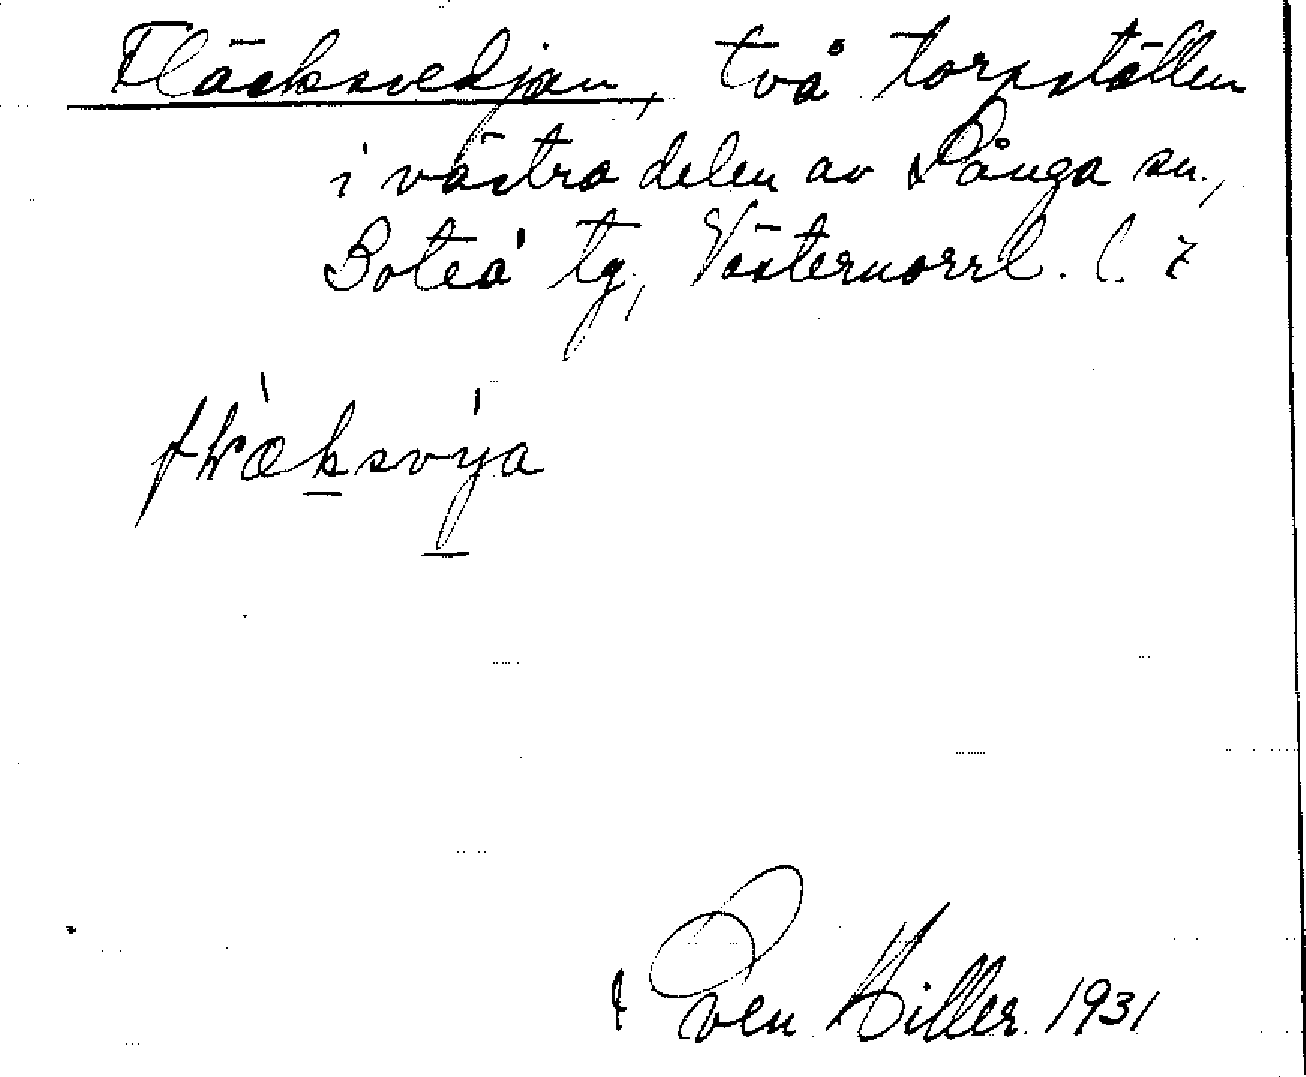 Fläcksvedjan, två torpställen
i västra delen av Sånga sn.,
Boteå tg., Västernorrl. l.
Sven Hiller 1931